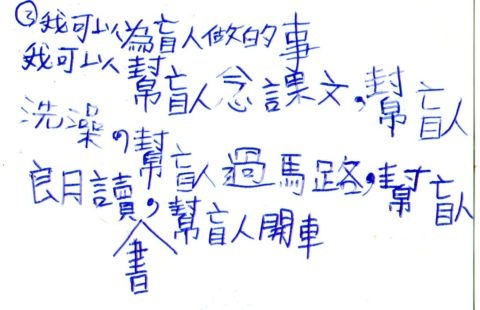 ③我可以為盲人做的事
我可以幫盲人念課文,幫盲人
洗澡,幫盲人過馬路,幫盲人
朗讀,幫盲人開車
書